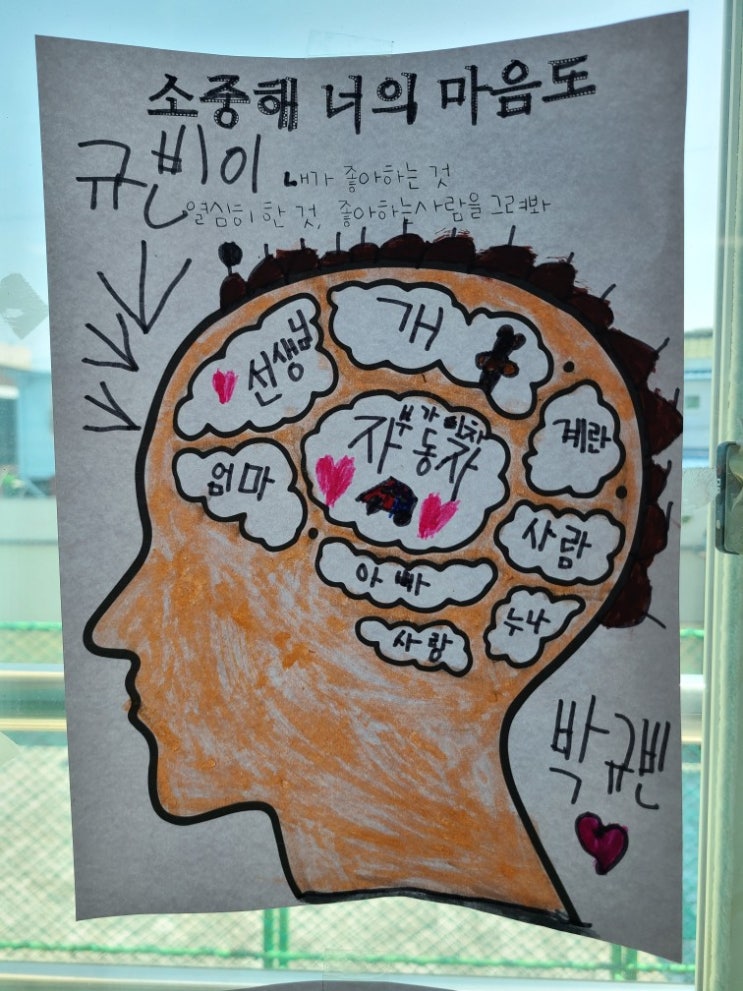 소중해 너의 마음도
규빈이 내가 좋아하는 것
열심히 한 것, 좋아하는사람을 그려봐
개
선생님
자동차
계란
엄마
사람
아빠
누나
사랑
박규빈